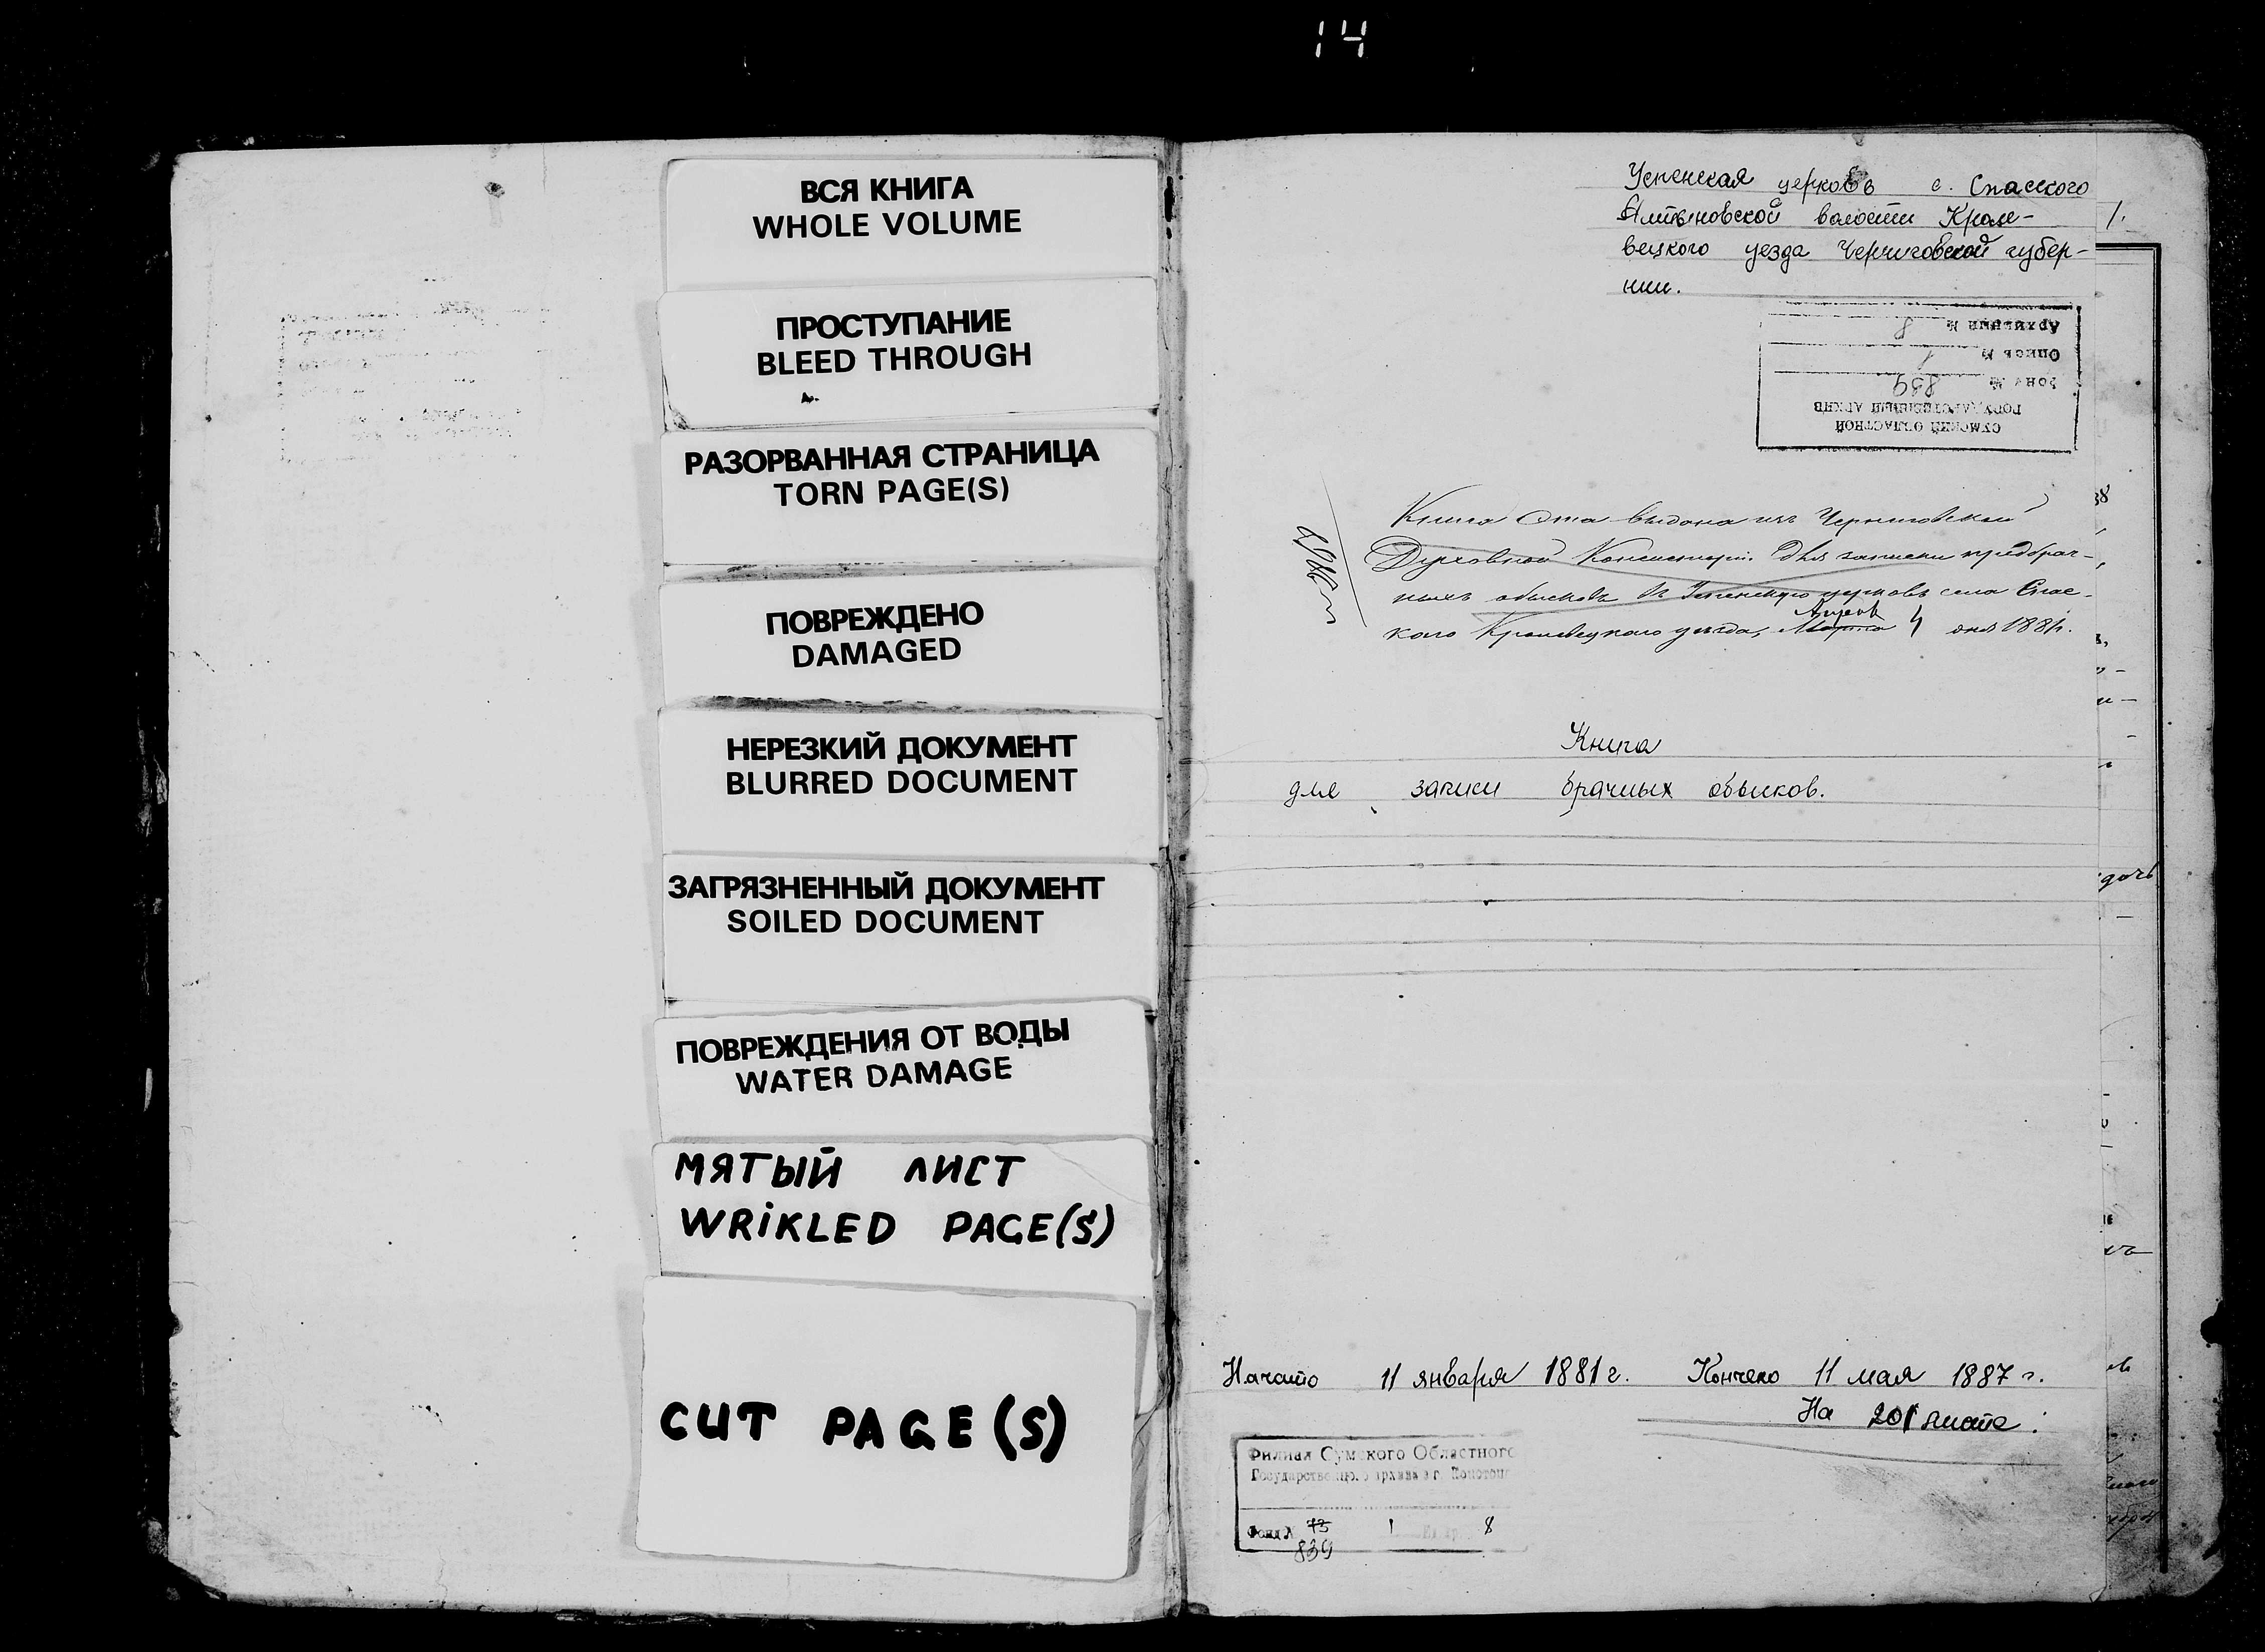 14
ВСЯ КНИГА
WHOLE VOLUME
ПРОСТУПАНИЕ
BLEED THROUGH
РАЗОРВАННАЯ СТРАНИЦА
TORN PAGE(S)
ПОВРЕЖДЕНО
DAMAGED
НЕРЕЗКИЙ ДОКУМЕНТ
BLURRED DOCUMENT
ЗАГРЯЗНЕННЫЙ ДОКУМЕНТ
SOILED DOCUMENT
ПОВРЕЖДЕНИЯ ОТ ВОДЫ
WATER DAMAGE
МЯТЫЙ ЛИСТ
WRiKLED PAGE(S)
CUT PAGE(S)
Успенская церковь с. Спасского
Алтыновской волости Кроле-
вецкого уезда Черниговской губер-
нии.
1.
СУМСКИЙ ОБЛАСТНОЙ
ГОСУДАРСТВЕННЫЙ АРХИВ
Фонд № 839
Опись № 1
Архивный № 8
Книга эта выдана изъ Черниговской
Духовной Консисторіи для записки предбрач-
ныхъ обысковъ въ Успенскую церковь села Спас-
кого Кролевецкого уезда, Марта 4 дня 1881г.
Книга
для записи брачных обысков.
дочь
Начато 11 января 1881 г. Кончено 11 мая 1887 г.
На 201 листе.
Филиал Сумского Областного
Государственного архива в г. Конотоп
Фонд № 73 1 8
839